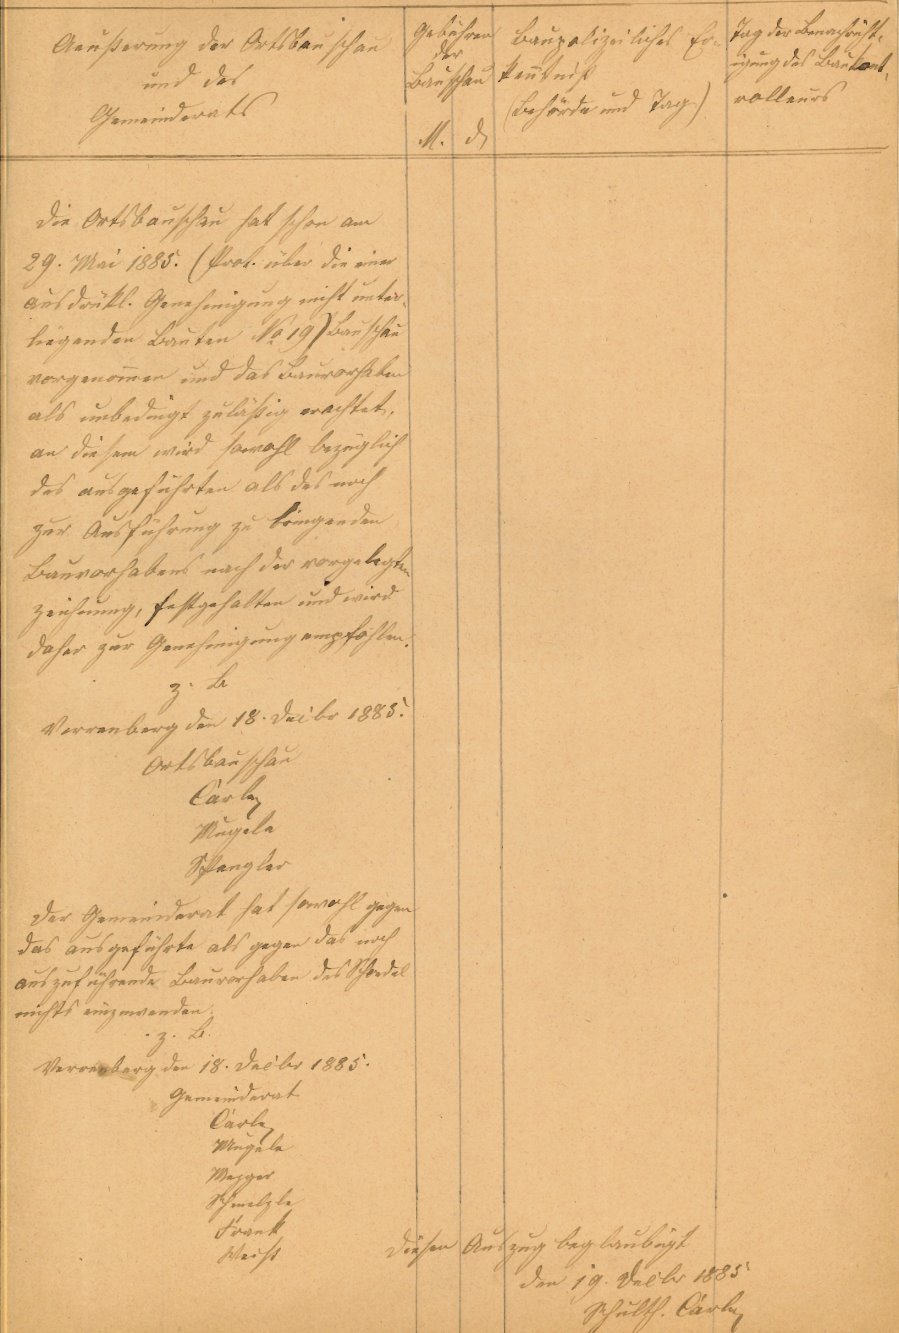 Aeußerung der Ortsbauschau
und des
Gemeinderats
Gebühren
der
Bauschau
M. d
Baupolizeiliches Er-
kenntniß
(Behörde und Tag)
Tag der Benachricht-
igung des Baukont-
rolleurs
Die Ortsbauschau hat schon am
29. Mai 1885. (Prot. über die einer
ausdrükl. Genehmigung nicht unter-
liegenden Bauten No 19) Bauschau
vorgenommen und das Bauvorhaben
als unbedingt zuläßig erachtet,
an diesem wird sowohl bezüglich
des ausgeführten als des noch
zur Ausführung zu bringenden
Bauvorhabens nach der vorgelegten
Zeichnung, festgehalten und wird
daher zur Genehmigung empfohlen.
z. B.
Verrenberg den 18. Decbr 1885.
Ortsbauschau
Carle
Mugele
Spengler
Der Gemeinderat hat sowohl gegen
das ausgeführte als gegen das noch
auszuführende Bauvorhaben des
nichts einzuwenden.
z. B.
Verrenberg den 18. Decbr 1885.
Gemeinderat
Carle
Mugele
Mezger
Schmelzle
Frank
Weiß
Diesen Auszug beglaubigt
den 19. Decbr 1885
Schulth. Carle